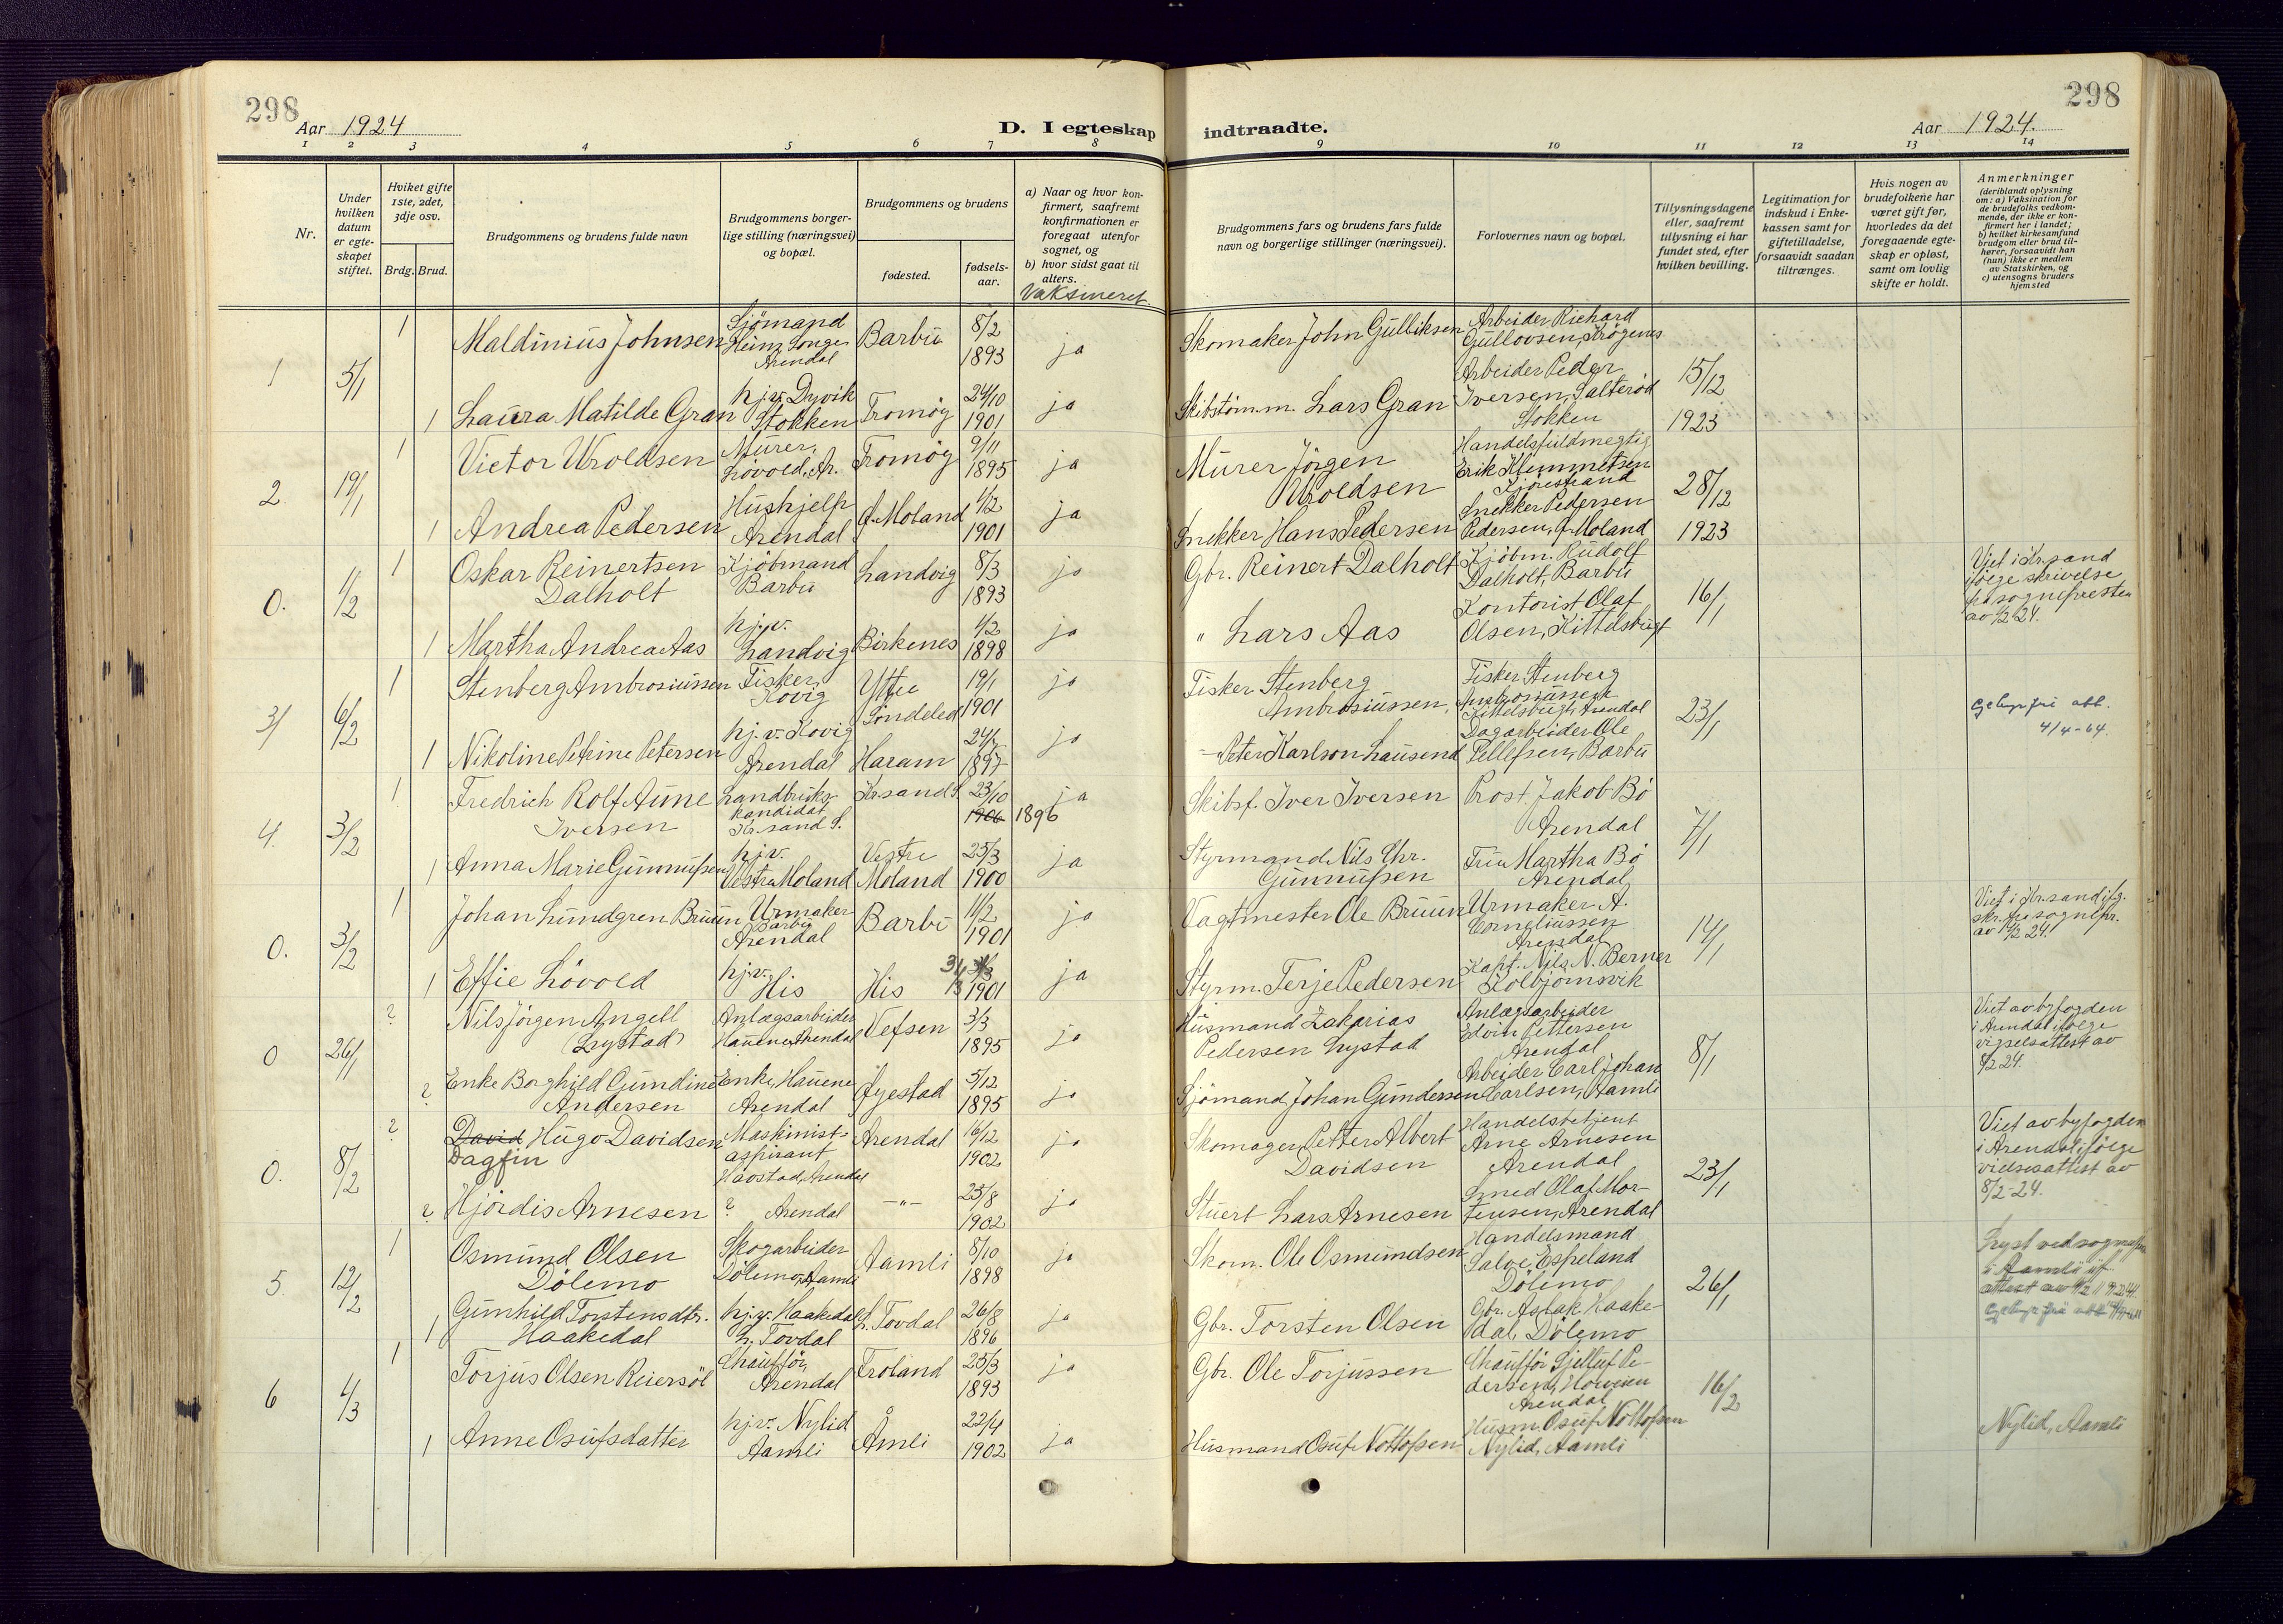 298
Aar 1924
D. I egteskap
indtraadte.
Aar 1924.
298
1 2 3 4 5 6 7 8
9 10 11 12 13 14
Nr.
Under hvilken datum er egteskapet stiftet.
Hviket gifte 1ste, 2det, 3dje osv.
Brdg. Brud.
Brudgommens og brudens fulde navn
Brudgommens borgerlige stilling (næringsvei) og bopæl.
Brudgommens og brudens
fødested.
fødselsaar.
a) Naar og hvor konfirmert, saafremt konfirmationen er foregaat utenfor sognet, og
b) hvor sidst gaat til alters.
Vaksineret.
Brudgommens fars og brudens fars fulde navn og borgerlige stillinger (næringsvei).
Forlovernes navn og bopæl.
Tillysningsdagene eller, saafremt tillysning ei har fundet sted, efter hvilken bevilling.
Legitimation for indskud i Enkekassen samt for giftetilladelse, forsaavidt saadan tiltrænges.
Hvis nogen av brudefolkene har været gift før, hvorledes da det foregaaende egteskap er opløst, samt om lovlig skifte er holdt.
Anmerkninger
(deriblandt oplysning om: a) Vaksination for de brudefolks vedkommende, der ikke er konfirmert her i landet;
b) hvilket kirkesamfund brudgom eller brud tilhører, forsaavidt han (hun) ikke er medlem av Statskirken, og
c) utensogns bruders hjemsted
1 5/1 1 Maldinius Johnsen Sjömand Heim Songe Arendal Barbu 8/2 1893 ja
Skomaker John Gulliksen Arbeider Richard Gullovsen, Krögenes
1 Laura Matilde Gran hjv. Dyvik Stokken Tromöy 24/10 1901 ja
Skibstöm.m. Lars Gran Arbeider Peder Iversen, Salteröd Stokken 15/12 1923
2. 19/1 1 Victor Uroldsen Murer, Lövold, Ar. Tromöy 9/11 1895 ja
Murer Jörgen Uroldsen Handelsfuldmegtig Erik Klemmetsen
1 Andrea Pedersen Hushjelp Arendal Ö. Moland 1/2 1901 ja
Snekker Hans Pedersen Snekker Pedersen Pedersen, Ö. Moland 28/12 1923
0. 1/2 1 Oskar Reinertsen Dalholt Kjöbmand Barbu Landvig 8/3 1893 ja
Gbr. Reinert Dalholt Kjöbm. Rudolf Dalholt, Barbu 16/1
Viet i Kr.sand ifölge skrivelse fra sognepresten av 1/2 24.
1 Martha Andrea Aas hj.v. Landvig Birkenes 1/2 1898 ja
" Lars Aas Kontorist Olaf Olsen, Kittelsbugt
3/ 6/2 1 Stenberg Ambrosiussen Fisker, Kovig Ytre Söndeled 19/1 1901 ja
Fisker Stenberg Ambrosiussen, Fisker Stenberg Ambrosiussen Kittelsbugt Arendal 23/1
4/4-64.
1 Nikoline Petrine Petersen hj.v. Kovig Arendal Haram 24/7 1897 ja
Peter Karlson Lausend Dagarbeider Ole Pellefsen, Barbu
4. 3/2 1 Fredrich Rolf Aune Iversen Landbrukskandidat Kr.sand S. Kr.sand S. 23/10 1906 1896 ja
Skibsf. Iver Iversen Prost Jakob Bö Arendal 7/1
1 Anna Marie Gunnufsen hjv. Vestre Moland Vestre Moland 25/3 1900 ja
Styrmand Nils Chr. Gunnufsen Fru Martha Bö Arendal
0. 3/2 1 Johan Lundgren Bruun Urmaker Barbu Arendal Barbu 11/2 1901 ja
Vagtmester Ole Bruun Urmaker A. Corneliussen Arendal 14/1
Viet i Kr.sand iflg. skr. fra sognepr. av 4/2 24.
1 Effie Lövold hj.v. His His 31/3 1901 ja
Styrm. Terje Pedersen Kapt. Nils N. Berner Kolbjörnsvik
0 26/1 2 Nils Jörgen Angell Lystad Anlægsarbeider Hauene, Arendal Vefsen 3/3 1895 ja
Husmand Zakarias Pedersen Lystad Anlægsarbeider Edvin Pettersen Arendal 8/1
Viet av byfogden i Arendal ifölge vigselsattest av 8/2 24.
2 Enke Borghild Gundine Andersen Enke, Hauene Arendal Öyestad 5/12 1895 ja
Sjömand Johan Gundersen Arbeider Carl Johan Carlsen, Aamli
0. 8/2 2 David Hugo Davidsen Dagfin Maskinistaspirant Havstad, Arendal Arendal 16/12 1902 ja
Skomager Petter Albert Davidsen Handelsbetjent Arne Arnesen Arendal 23/1
Viet av byfogden i Arendal ifölge vielsesattest av 8/2-24.
2 Hjördis Arnesen ? Arendal -"- 25/8 1902 ja
Stuert Lars Arnesen Smed Olaf Mortensen, Arendal
5. 12/2 1 Osmund Olsen Dölemo Skogarbeider Dölemo, Aamli Aamli 8/10 1898 ja
Skom. Ole Osmundsen Handelsmand Salve Espeland Dölemo 26/1
Lyst ved sogneprest i Aamli
1 Gunhild Torstensdtr. Haakedal hj.v. Haakedal h. Tovdal h. Tovdal 26/8 1896 ja
Gbr. Torsten Olsen Gbr. Aslak Haakedal, Dölemo
6 4/3 1 Torjus Olsen Reiersöl Chaufför, Arendal Froland 25/3 1893 ja
Gbr. Ole Torjussen Chaufför Gjelluf Pedersen, Arendal 16/2
1 Anne Osufsdatter hjv. Nylid Aamli Åmli 22/4 1902 ja
Husmand Osuf Nottofsen Husm Osuf Nottofsen Nylid, Aamli
Nylid, Aamli